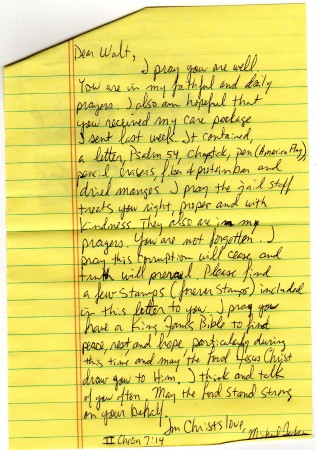 Dear Walt,
I pray you are well.
You are in my faithful and daily
prayers. I also am hopeful that
you received my care package
I sent last week. It contained,
a letter, Psalm 54, chapstick, pen (America Flag),
pencil erasers, protein bar and
dried mangos. I pray the jail staff
treats you right, proper and with
kindness. They also are in my
prayers. You are not forgotten. I
pray this corruption will cease and
truth will prevail. Please find
a few stamps (forever stamps) included
in this letter to you. I pray you
have a King James Bible to find
peace, rest and hope particularly during
this time and may the Lord Jesus Christ
draw you to Him. I think and talk
of you often. May the Lord stand strong
on your behalf.
In Christs love,
II Chron 7:14